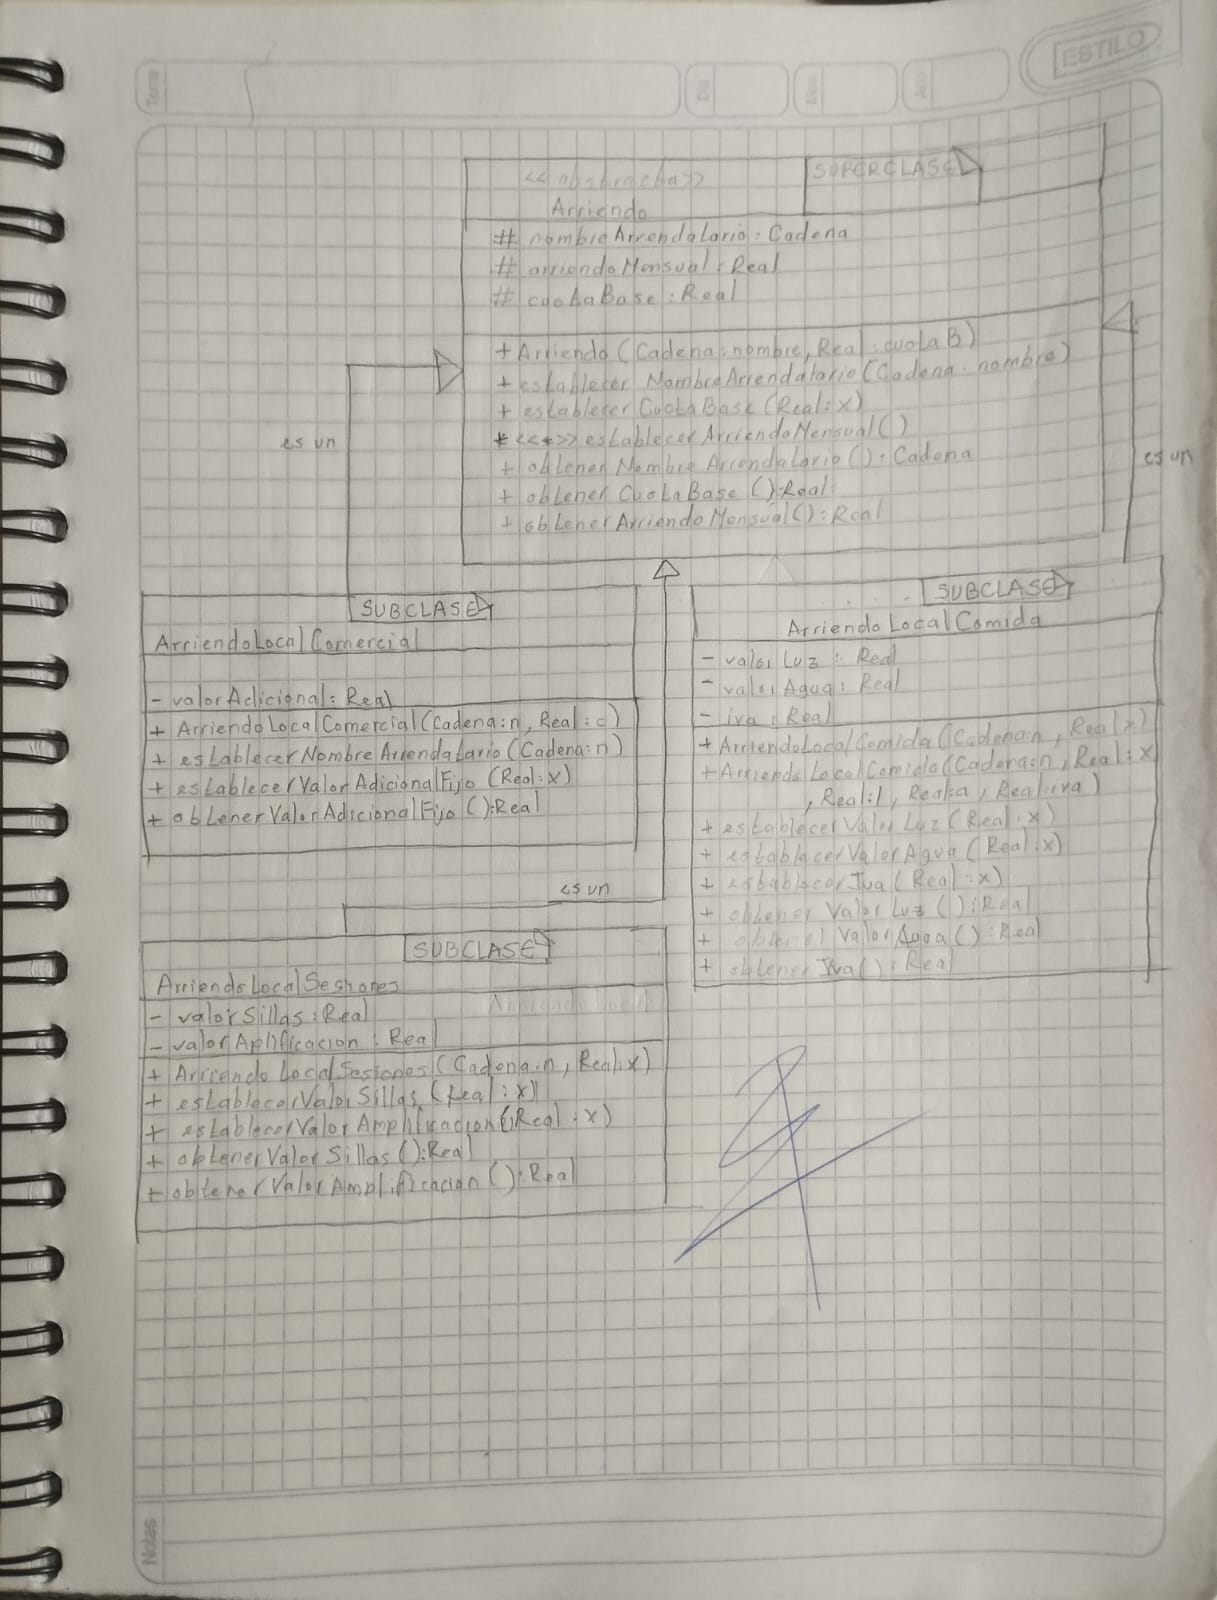 ESTILO
Tema
Día
Mes
Año
<<abstracta>>
SUPERCLASE
Arriendo
# nombreArrendatario : Cadena
# arriendoMensual : Real
# cuotaBase : Real
+ Arriendo (Cadena : nombre, Real : cuotaB)
+ establecer NombreArrendatario (Cadena : nombre)
+ establecer CuotaBase (Real : x)
+ <<*>> establecerArriendoMensual ()
+ obtener Nombre Arrendatario () : Cadena
+ obtener CuotaBase () : Real
+ obtenerArriendoMensual () : Real
es un
es un
SUBCLASE
ArriendoLocalComercial
- valorAdicional : Real
+ ArriendoLocalComercial (Cadena : n, Real : c)
+ establecerNombreArrendatario (Cadena : n)
+ establecerValorAdicionalFijo (Real : x)
+ obtenerValorAdicionalFijo () : Real
SUBCLASE
Arriendo Local Comida
- valor Luz : Real
- valor Agua : Real
- iva : Real
+ ArriendoLocalComida (Cadena : n, Real x)
+ Arriendo LocalComida (Cadena : n, Real : x
, Real : l, Real : a, Real : iva)
+ establecerValor Luz (Real : x)
+ establecerValorAgua (Real : x)
+ establecerIva (Real : x)
+ obtener Valor Luz () : Real
+ obtener Valor Agua () : Real
+ obtener Iva () : Real
es un
SUBCLASE
Arriendo Local Seshones
- valorSillas : Real
- valorAplificacion : Real
+ Arriendo LocalSesiones (Cadena : n, Real : x)
+ establecerValorSillas (Real : x)
+ establecerValor Amplificacion (Real : x)
+ obtenerValor Sillas () : Real
+ obtenerValor Amplificacion () : Real
Notas